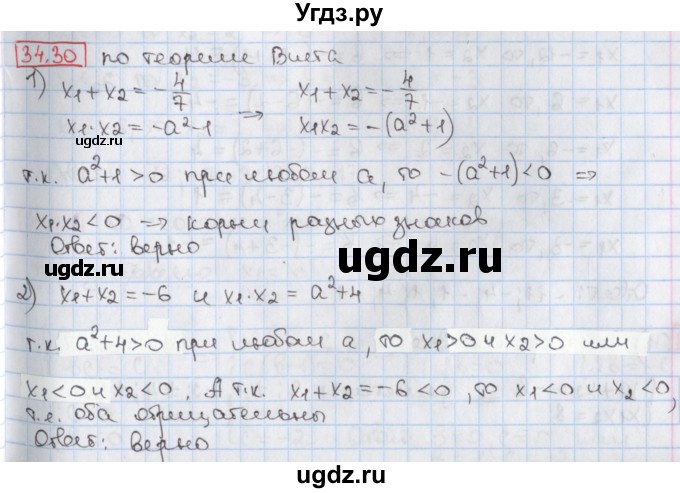 Угдз.ру
34.30 по теореме Виета
1) x₁+x₂ = -4/7 x₁+x₂ = -4/7
x₁·x₂ = -a²-1 ⇒ x₁x₂ = -(a²+1)
©ugdz.ru
т.к. a²+1>0 при любом a, то -(a²+1)<0 ⇒
x₁·x₂<0 ⇒ корни разных знаков
Ответ: верно
ugdz.ru
ugdz.ru
2) x₁+x₂ = -6 и x₁·x₂ = a²+4
т.к. a²+4>0 при любом a, то x₁>0 и x₂>0 или
x₁<0 и x₂<0. А т.к. x₁+x₂ = -6 <0, то x₁<0 и x₂<0,
т.е. оба отрицательны
Ответ: верно
ugdz.ru
ugdz.ru